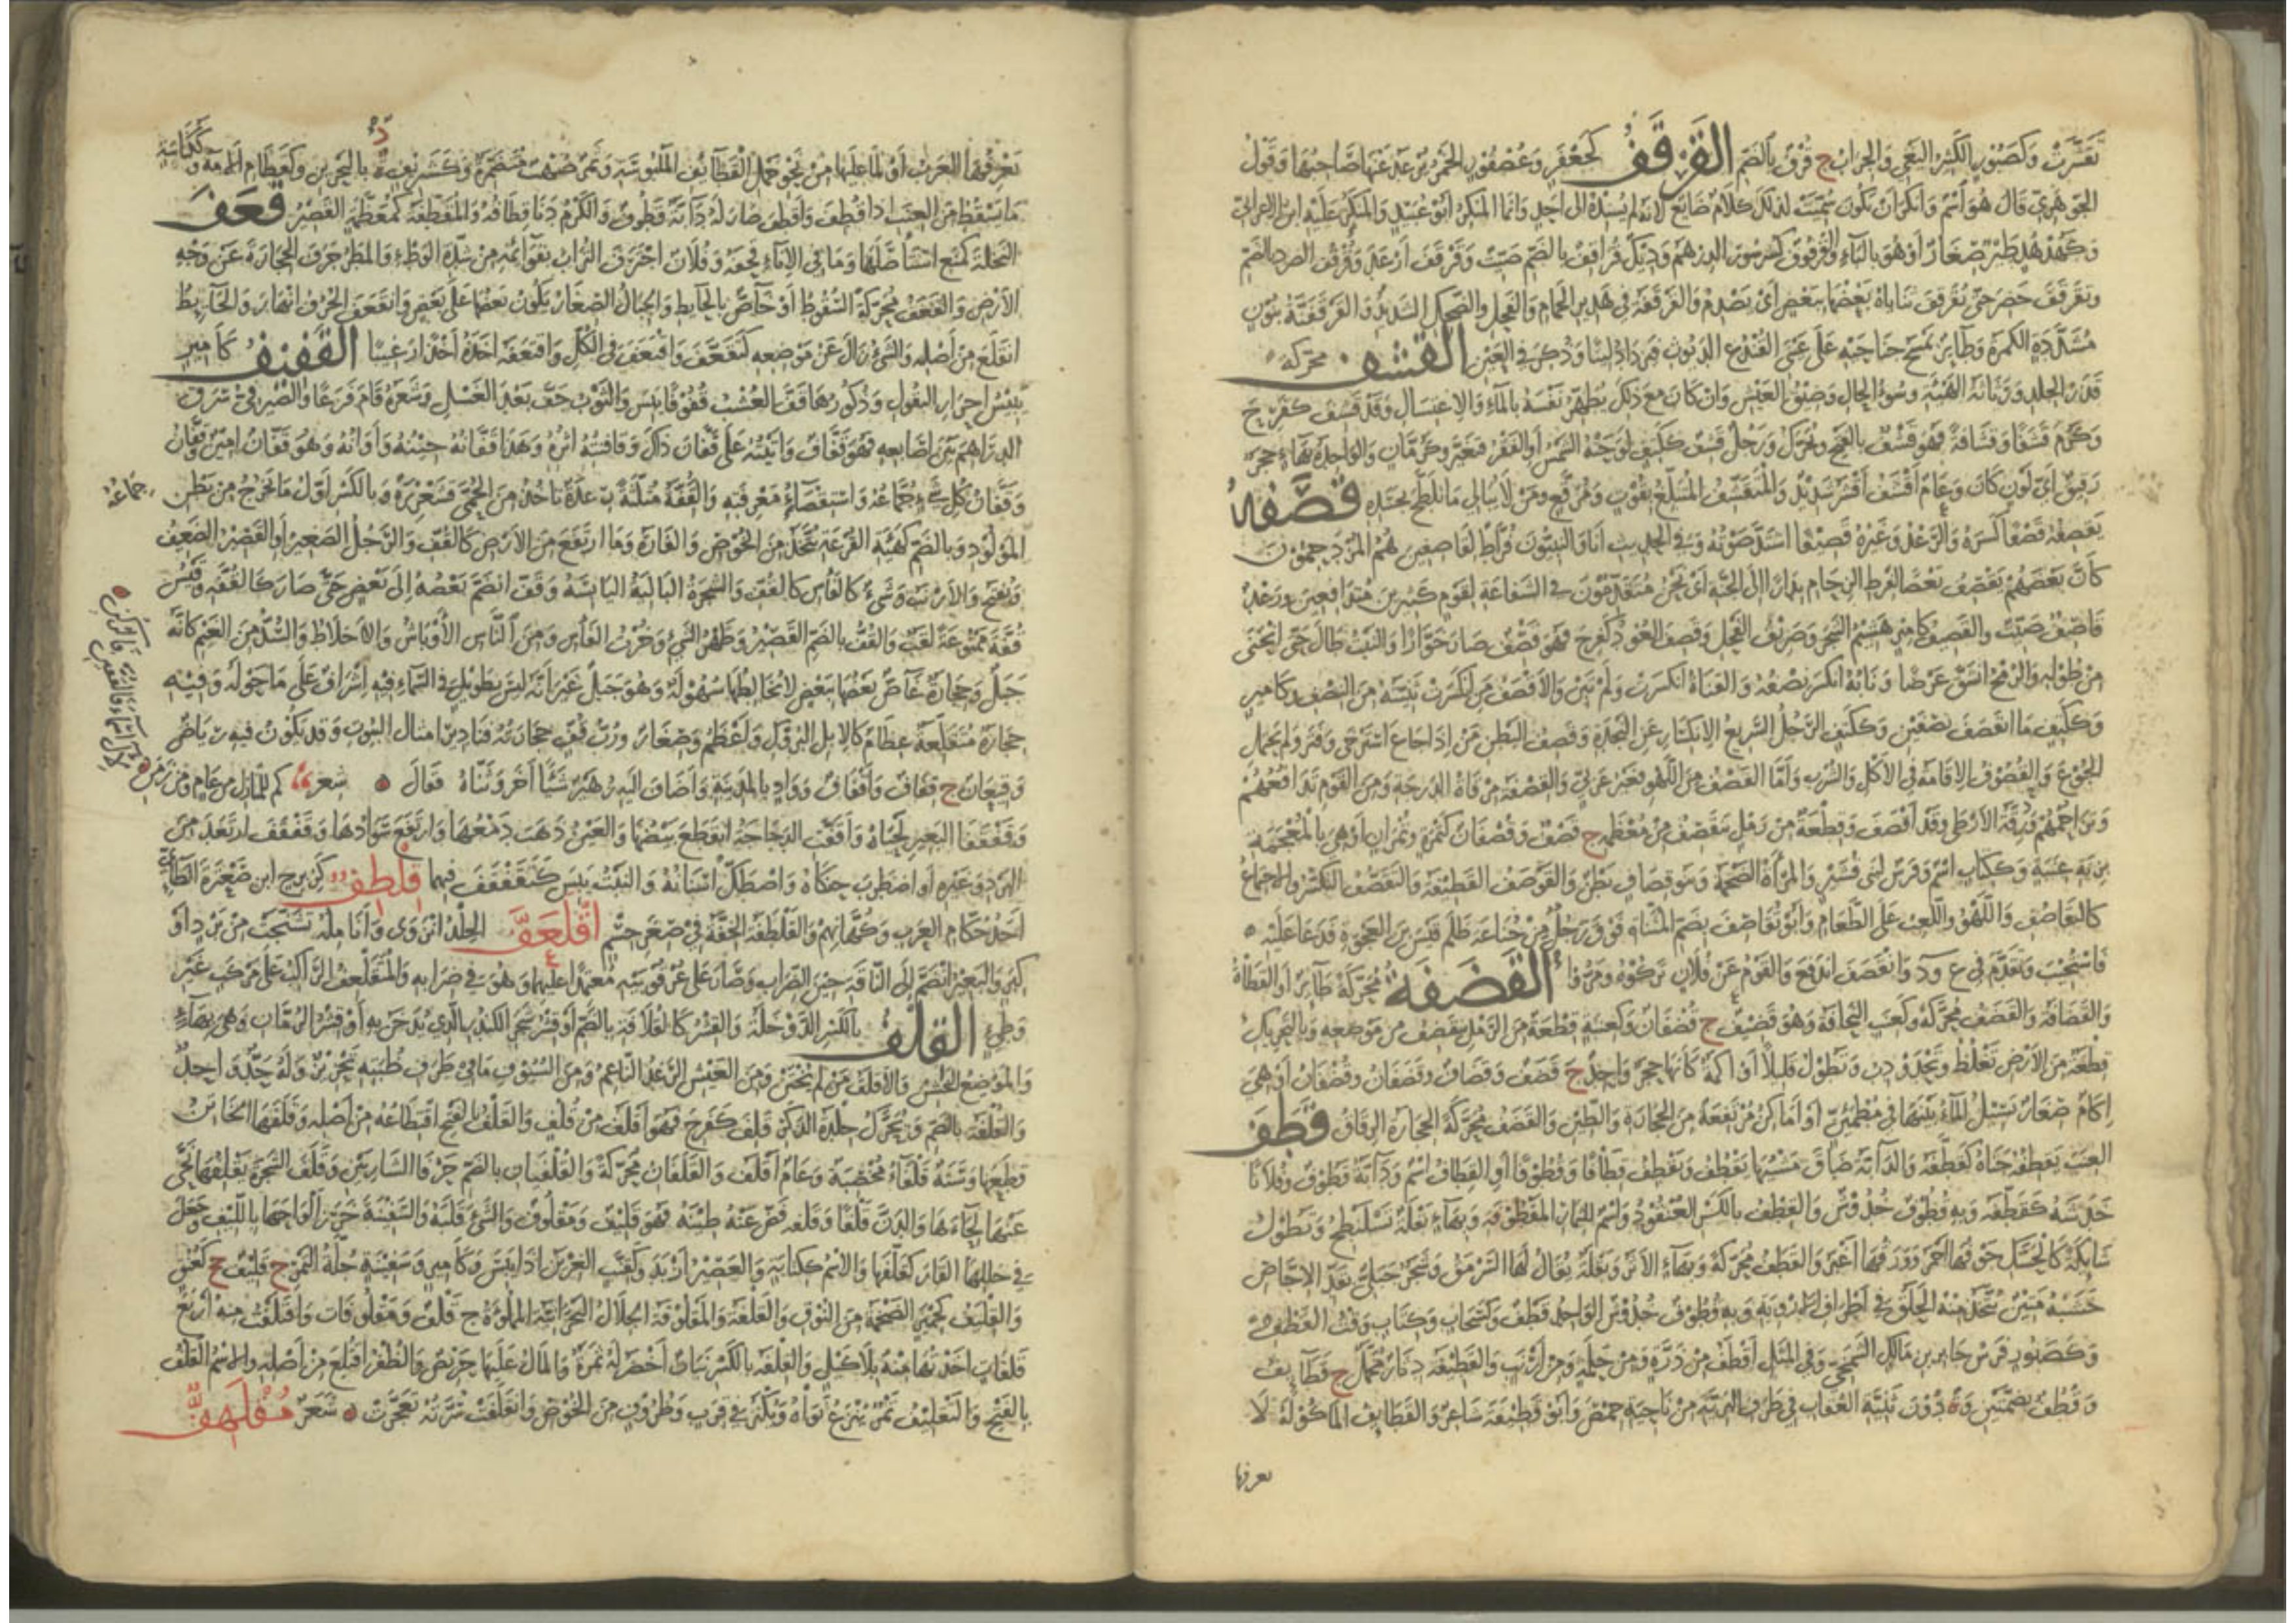 تَقَشَّرَتْ وَكَصَبُورٍ الكَثِيرُ البَغْيِ وَالجِرَابُ ج قُرْفٌ بالضم القَرْقَفُ كَجَعْفَرٍ وَعُصْفُورٍ الخَمْرُ يُرْعَدُ عَنْهَا صَاحِبُهَا وَقَوْلُ
الجَوْهَرِيِّ قَالَ هُوَ اسْمٌ وَأنكر أن تكون سُمِّيَتْ لذلك كَلَامٌ ضَائِعٌ لأنه لم يُسْنِدْهُ إلى أحدٍ وَإنما المنكِرُ أبو عُبَيْدٍ وَالمنكَرُ عَلَيْهِ ابن الاعرابيّ
وَكَهُدْهُدٍ طَيْرٌ صِغَارٌ أَوْ هُوَ بالباءِ وَالقُرْقُوفُ كَسُرْسُورٍ الدِّرْهَمُ وَدِيكٌ قُرَاقِفٌ بالضم صَيِّتٌ وَقَرْقَفَ أَرْعَدَ وَقُرْقِفَ الصَّرِدُ بالضم
وَتَقَرْقَفَ خَصِرَ حَتَّى تُقَرْقِفَ ثَنَايَاهُ بَعْضُهَا بِبَعْضٍ أيْ تَصْدِمُ وَالقَرْقَفَةُ في هَدِيرِ الحَمَامِ وَالفَحْلِ وَالضَّحِكِ الشَّدِيدُ وَالقَرْقَفَنَّةُ بِنُونٍ
مُشَدَّدَةٍ الكَمَرَةُ وَطَائِرٌ يَمْسَحُ جَنَاحَيْهِ عَلَى عَيْنَيِ القُنْذُعِ الدَّيُّوثِ فَيَزْدَادُ لِينًا وَذُكِرَ في العَيْنِ القَشَفُ محركة
قَذَرُ الجِلْدِ وَرَثَاثَةُ الهَيْئَةِ وَسُوءُ الحَالِ وَضِيقُ العَيْشِ وَإن كان مع ذلك يُطَهِّرُ نَفْسَهُ بالماءِ وَالاغتسالِ وَقد قَشِفَ كَفَرِحَ
وَكَرُمَ قَشَفًا وَقَشَافَةً فهو قَشْفٌ بالفتح وَيُحَرَّكُ وَرَجُلٌ قَشِفٌ كَكَتِفٍ لَوَّحَتْهُ الشَّمْسُ أَوِ الفَقْرُ فَتَغَيَّرَ وَكَرُمَّانٍ وَالواحِدَةُ بِهَاءٍ حَجَرٌ
رَقِيقٌ أيَّ لَوْنٍ كانَ وَعَامٌ أَقْشَفُ أَقْشَرُ شَدِيدٌ وَالمُتَقَشِّفُ المُتَبَلِّغُ بِقُوتٍ وَمُرَقَّعٍ وَمَنْ لَا يُبَالِي مَا تَلَطَّخَ بِجَسَدِهِ قَصَفَهُ
يَقْصِفُهُ قَصْفًا كَسَرَهُ وَالرَّعْدُ وَغَيْرُهُ قَصِيفًا اشْتَدَّ صَوْتُهُ وَفي الحديث أنا وَالنبيون فُرَّاطٌ لقَاصِفِينَ هُمُ المُزْدَحِمُونَ
كأنَّ بَعْضَهُمْ يَقْصِفُ بَعْضًا لفرط الزِّحَامِ بِدَارًا إلى الجنَّةِ أي نَحْنُ مُتَقَدِّمُونَ في الشفاعةِ لقوم كثيرين مُتَدَافِعِينَ وَرَعْدٌ
قَاصِفٌ صَيِّتٌ وَالقَصِيفُ كأميرٍ هَشِيمُ الشَّجَرِ وَصَرِيفُ الفَحْلِ وَقَصِفَ العُودُ كفرح فهو قَصِفٌ صَارَ خَوَّارًا وَالنَّبْتُ طَالَ حَتَّى انْحَنَى
مِنْ طُولِهِ وَالرُّمْحُ انْشَقَّ عَرْضًا وَنَابُهُ انْكَسَرَ نِصْفُهُ وَالقَنَاةُ انْكَسَرَتْ وَلَمْ تَبِنْ وَالأَقْصَفُ مَنِ انْكَسَرَتْ ثَنِيَّتُهُ مِنَ النِّصْفِ وَكأميرٍ
وَكَكَتِفٍ مَا انْقَصَفَ نِصْفَيْنِ وَكَكَتِفٍ الرَّجُلُ السَّرِيعُ الانْكِسَارِ عَنِ النَّجْدَةِ وَقَصِفُ البَطْنِ مَنْ إذَا جَاعَ اسْتَرْخَى وَفَتَرَ وَلم يَحْتَمِلِ
الجُوعَ وَالقُصُوفُ الإقَامَةُ في الأَكْلِ وَالشُّرْبِ وَأَمَّا القَصْفُ مِنَ اللَّهْوِ فَغَيْرُ عَرَبِيٍّ وَالقَصْفَةُ مِرْقَاةُ الدَّرَجَةِ وَمِنَ القَوْمِ تَدَافُعُهُمْ
وَتَزَاحُمُهُمْ وَرِقَّةُ الأَرْطَى وَقَدْ أَقْصَفَ وَقِطْعَةٌ مِنْ رَمْلٍ تَنْقَصِفُ مِنْ مُعْظَمِهِ ج قَصْفٌ وَقُصْفَانٌ كَتَمْرَةٍ وَتُمْرَانٍ أَوْ هِيَ بِالمُعْجَمَةِ
كالتَّقَاصُفِ وَاللَّهْوُ وَاللَّعِبُ عَلَى الطَّعَامِ وَأَبُو تُقَاصِفَ بِضَمِّ المُثَنَّاةِ فَوْقُ رَجُلٌ مِنْ خُنَاعَةَ ظَلَمَ قَيْسَ بنَ العَجْوَةِ فَدَعَا عَلَيْهِ
فَاسْتُجِيبَ وَتَقَدَّمَ في ع و د وَانْقَصَفَ انْدَفَعَ وَالقَوْمُ عَنْ فُلَانٍ تَرَكُوهُ وَمَرُّوا القَضَفَةُ مُحَرَّكَةً طَائِرٌ أَوِ القَطَاةُ
وَالقَضَافَةُ وَالقَضَفُ مُحَرَّكَةً وَكَعِنَبٍ النَّحَافَةُ وَهُوَ قَضِيفٌ ج قُضْفَانٌ وَكَعِنَبَةٍ قِطْعَةٌ مِنَ الرَّمْلِ يَنْقَضِفُ مِنْ مَوْضِعِهِ وَبِالتَّحْرِيكِ
قِطْعَةٌ مِنَ الأَرْضِ تَغْلُظُ وَتَحْدَوْدِبُ وَتَطُولُ قَلِيلًا أَوْ أَكَمَةٌ كَأَنَّهَا حَجَرٌ وَاحِدٌ ج قَضَفٌ وَقِضَافٌ وَقِضْفَانٌ وَقُضْفَانٌ أَوْ هِيَ
إكَامٌ صِغَارٌ يَسِيلُ المَاءُ بَيْنَهَا في مُطْمَئِنٍّ أَوْ أَمَاكِنُ مُرْتَفِعَةٌ مِنَ الحِجَارَةِ وَالطِّينِ وَالقَضَفُ مُحَرَّكَةً الحِجَارَةُ الرِّقَاقُ قَطَفَ
العِنَبَ يَقْطِفُهُ جَنَاهُ كَقَطَّفَهُ وَالدَّابَّةُ ضَاقَ مَشْيُهَا يَقْطُفُ وَيَقْطِفُ قِطَافًا وَقُطُوفًا أَوِ القِطَافُ اسْمٌ وَدَابَّةٌ قَطُوفٌ وَفُلَانًا
خَدَشَهُ كَقَطَّفَهُ وَبِهِ قُطُوفٌ خُدُوشٌ وَالقِطْفُ بِالكَسْرِ العُنْقُودُ وَاسْمٌ لِلثِّمَارِ المَقْطُوفَةِ وَبِهَاءٍ بَقْلَةٌ تَسْلَنْطِحُ وَتَطُولُ
شَائِكَةٌ كَالحَسَكِ جَوْفُهَا أَحْمَرُ وَوَرَقُهَا أَغْبَرُ وَالقَطَفُ مُحَرَّكَةً وَبِهَاءٍ الأَثَرُ وَبَقْلَةٌ يُقَالُ لَهَا السَّرْمَقُ وَشَجَرٌ جَبَلِيٌّ بِقَدْرِ الإجَّاصِ
خَشَبُهُ مَتِينٌ يُتَّخَذُ مِنْهُ الحَلَقُ في أَطْرَافِ الأَرْوِيَةِ وَبِهِ قُطُوفٌ خُدُوشٌ الوَاحِدُ قَطْفٌ وَكَسَحَابٍ وَكِتَابٍ وَقْتُ القَطْفِ
وَكَصَبُورٍ فَرَسُ جَابِرِ بنِ مَالِكٍ الشَّمَجِيِّ وَفي المَثَلِ أَقْطَفُ مِنْ ذَرَّةٍ وَمِنْ حَلَمَةٍ وَمِنْ أَرْنَبٍ وَالقَطِيفَةُ دِثَارٌ مُخَمَّلٌ ج قَطَائِفُ
وَقُطُفٌ بِضَمَّتَيْنِ وَة دُونَ ثَنِيَّةِ العُقَابِ في طَرَفِ البَرِّيَّةِ مِنْ نَاحِيَةِ حِمْصَ وَأَبُو قَطِيفَةَ شَاعِرٌ وَالقَطَائِفُ المَأْكُولَةُ لَا
تعرفها
تَعْرِفُهَا العَرَبُ أَوْ لِمَا عَلَيْهَا مِنْ نَحْوِ خَمْلِ القَطَائِفِ المَلْبُوسَةِ وَتَمْرٌ صُهْبٌ مُتَضَمِّرَةٌ وَكَشَرِيفٍ د بِالبَحْرَيْنِ وَكَقَطَامِ الأَمَةُ وَكَكُنَاسَةٍ
مَا يَسْقُطُ مِنَ العِنَبِ إذَا قُطِفَ وَأَقْطَفَ صَارَ لَهُ دَابَّةٌ قَطُوفٌ وَالكَرْمُ دَنَا قِطَافُهُ وَالمُقَطَّفَةُ كَمُعَظَّمَةٍ القَصِيرُ قَعَفَ
النَّخْلَةَ كَمَنَعَ اسْتَأْصَلَهَا وَمَا في الإنَاءِ قَحَفَهُ وَفُلَانٌ اجْتَرَفَ التُّرَابَ بِقَوَائِمِهِ مِنْ شِدَّةِ الوَطْءِ وَالمَطَرُ جَرَفَ الحِجَارَةَ عَنْ وَجْهِ
الأَرْضِ وَالقَعَفُ مُحَرَّكَةً السُّقُوطُ أَوْ خَاصٌّ بِالحَائِطِ وَالجِبَالُ الصِّغَارُ يَكُونُ بَعْضُهَا عَلَى بَعْضٍ وَانْقَعَفَ الجُرُفُ انْهَارَ وَالحَائِطُ
انْقَلَعَ مِنْ أَصْلِهِ وَالشَّيْءُ زَالَ عَنْ مَوْضِعِهِ كَتَقَعَّفَ وَاقْتَعَفَ في الكُلِّ وَاقْتَعَفَهُ أَخَذَهُ أَخْذًا رَغِيبًا القَفِيفُ كأميرٍ
يَبِيسُ أَحْرَارِ البُقُولِ وَذُكُورِهَا قَفَّ العُشْبُ قُفُوفًا يَبِسَ وَالثَّوْبُ جَفَّ بَعْدَ الغَسْلِ وَشَعْرُهُ قَامَ فَزَعًا وَالصَّيْرَفِيُّ سَرَقَ
الدَّرَاهِمَ بَيْنَ أَصَابِعِهِ فَهُوَ قَفَّافٌ وَأَتَيْتُهُ عَلَى قَفَّانِ ذَاكَ وَقَافِيَتِهِ أَثَرِهِ وَهَذَا قَفَّانُهُ حِينُهُ وَأَوَانُهُ وَهُوَ قَفَّانٌ أَمِينٌ وَقَفَّانُ
وَقَفَّانُ كُلِّ شَيْءٍ جُمَّاعُهُ وَاسْتِقْصَاءُ مَعْرِفَتِهِ وَالقُفَّةُ مُثَلَّثَةً رِعْدَةٌ تَأْخُذُ مِنَ الحُمَّى وَقُشَعْرِيرَةٌ وَبِالكَسْرِ أَوَّلُ مَا يَخْرُجُ مِنْ بَطْنِ
المَوْلُودِ وَبِالضَّمِّ كَهَيْئَةِ القَرْعَةِ تُتَّخَذُ مِنَ الخُوصِ وَالفَارَةُ وَمَا ارْتَفَعَ مِنَ الأَرْضِ كَالقُفِّ وَالرَّجُلُ الصَّغِيرُ أَوِ القَصِيرُ الضَّعِيفُ
قَدْ يُفْتَحُ وَالأَرْنَبُ وَشَيْءٌ كَالفَأْسِ كَالقُفِّ وَالشَّجَرَةُ البَالِيَةُ اليَابِسَةُ وَقَفَّ انْضَمَّ بَعْضُهُ إلَى بَعْضٍ حَتَّى صَارَ كَالقُفَّةِ وَقَيْسُ
قُفَّةَ مَمْنُوعَةً لَقَبٌ وَالقُفُّ بِالضَّمِّ القَصِيرُ وَظَهْرُ الشَّيْءِ وَخُرْتُ الفَأْسِ وَمِنَ النَّاسِ الأَوْبَاشُ وَالأَخْلَاطُ وَالسُّدُّ مِنَ الغَيْمِ كَأَنَّهُ
جَبَلٌ وَحِجَارَةٌ غَاصَّ بَعْضُهَا بِبَعْضٍ لَا يُخَالِطُهَا سُهُولَةٌ وَهُوَ جَبَلٌ غَيْرَ أَنَّهُ لَيْسَ بِطَوِيلٍ في السَّمَاءِ فِيهِ إشْرَافٌ عَلَى مَا حَوْلَهُ وَفِيهِ
حِجَارَةٌ مُتَقَلِّعَةٌ عِظَامٌ كَالإبِلِ البُرُوكِ وَأَعْظَمُ وَصِغَارٌ وَرُبَّ قُفٍّ حِجَارَتُهُ فَنَادِيرُ أَمْثَالُ البُيُوتِ وَقَدْ يَكُونُ فِيهِ رِيَاضٌ
وَقِيعَانٌ ج قِفَافٌ وَأَقْفَافٌ وَوَادٍ بِالمَدِينَةِ وَأَضَافَ إلَيْهِ زُهَيْرٌ شَيْئًا آخَرَ وَثَنَّاهُ فَقَالَ شعر كَمْ لِلْمَنَازِلِ مِنْ عَامٍ وَمِنْ زَمَنِ
وَقَفْقَفَا البَعِيرِ لَحْيَاهُ وَأَقَفَّتِ الدَّجَاجَةُ انْقَطَعَ بَيْضُهَا وَالعَيْنُ ذَهَبَ دَمْعُهَا وَارْتَفَعَ سَوَادُهَا وَقَفْقَفَ ارْتَعَدَ مِنَ
البَرْدِ وَغَيْرِهِ أَوِ اضْطَرَبَ حَنَكَاهُ وَاصْطَكَّ أَسْنَانُهُ وَالنَّبْتُ يَبِسَ كَتَقَفْقَفَ فِيهِمَا قِلْطِفٌ كَزِبْرِجٍ ابن ضَعْتَرَةَ الطَّائِيُّ
أَحَدُ حُكَّامِ العَرَبِ وَكُهَّانِهِمْ وَالقَلْطَفَةُ الخِفَّةُ في صِغَرِ جِسْمٍ اقْلَعَفَّ الجِلْدُ انْزَوَى وَأَنَامِلُهُ تَشَنَّجَتْ مِنْ بَرْدٍ أَوْ
كِبَرٍ وَالبَعِيرُ انْضَمَّ إلَى النَّاقَةِ حِينَ الضِّرَابِ وَصَارَ عَلَى عُرْقُوبَيْهِ مُعْتَمِدًا عَلَيْهِمَا وَهُوَ في ضِرَابِهِ وَالمُتَقَلْعِفُ الرَّاكِبُ عَلَى مَرْكَبٍ غَيْرِ
وَطِيءٍ القِلْفُ بِالكَسْرِ الدَّوْخَلَةُ وَالقِشْرُ كَالقُلَافَةِ بِالضَّمِّ أَوْ قِشْرُ شَجَرِ الكُنْدُرِ الَّذِي يُدَخَّنُ بِهِ أَوْ قِشْرُ الرُّمَّانِ وَهِيَ بِهَاءٍ
وَالمَوْضِعُ الخَشِنُ وَالأَقْلَفُ مَنْ لَمْ يُخْتَنْ وَمِنَ العَيْشِ الرَّغَدُ النَّاعِمُ وَمِنَ السُّيُوفِ مَا في طَرَفِ ظُبَتِهِ تَحْزِيزٌ وَلَهُ حَدٌّ وَاحِدٌ
وَالقُلْفَةُ بِالضَّمِّ وَيُحَرَّكُ جِلْدَةُ الذَّكَرِ قَلِفَ كَفَرِحَ فَهُوَ أَقْلَفُ مِنْ قُلْفٍ وَالقَلْفُ بِالفَتْحِ اقْتِطَاعُهُ مِنْ أَصْلِهِ وَقَلَفَهَا الخَاتِنُ
قَطَعَهَا وَسَنَةٌ قَلْفَاءُ مُخْصِبَةٌ وَعَامٌ أَقْلَفُ وَالقَلَفَانِ مُحَرَّكَةً وَالقُلْفَتَانِ بِالضَّمِّ حَرْفَا الشَّارِبَيْنِ وَقَلَفَ الشَّجَرَةَ يَقْلِفُهَا نَحَّى
عَنْهَا لِحَاءَهَا وَالدَّنَّ قَلْفًا وَقَلْفَةً فَضَّ عَنْهُ طِينَهُ فَهُوَ قَلِيفٌ وَمَقْلُوفٌ وَالشَّيْءَ قَلَبَهُ وَالسَّفِينَةَ خَرَزَ أَلْوَاحَهَا بِاللِّيفِ وَجَعَلَ
في خَلَلِهَا القَارَ كَقَلَّفَهَا وَالاسْمُ كَكِتَابَةٍ وَالعَصِيرُ أَزْبَدَ وَكَعِنَبٍ الغِرْيَنُ إذَا يَبِسَ وَكَأَمِيرٍ وَسَفِينَةٍ جُلَّةُ التَّمْرِ ج قَلِيفٌ جج كَعُنُقٍ
وَالقِلَّيْفُ كَحِمْيَرٍ الضَّخْمَةُ مِنَ النُّوقِ وَالقِلْفَةُ وَالمَقْلُوفَةُ الجِلَالُ البَحْرَانِيَّةُ المَمْلُوءَةُ ج قَلْفٌ وَمَقْلُوفَاتٌ وَاقْتَلَفْتُ مِنْهُ أَرْبَعَ
قَلْفَاتٍ أَخَذْتُهَا مِنْهُ بِلَا كَيْلٍ وَالقِلْفَةُ بِالكَسْرِ نَبَاتٌ أَخْضَرُ لَهُ ثَمَرَةٌ وَالمَالُ عَلَيْهَا حَرِيصٌ وَالظُّفْرُ اقْتُلِعَ مِنْ أَصْلِهِ وَالاسْمُ القَلْفُ
بِالفَتْحِ وَالتَّقْلِيفُ تَمْرٌ يُنْزَعُ نَوَاهُ وَيُكْنَزُ في قِرَبٍ وَظُرُوفٍ مِنَ الخُوصِ وَانْقَلَفَتْ سُرَّتُهُ تَعَجَّرَتْ شَعَرٌ مُقْلَهِفٌّ
جماعه
لآل أسماء فالقفين فالركن